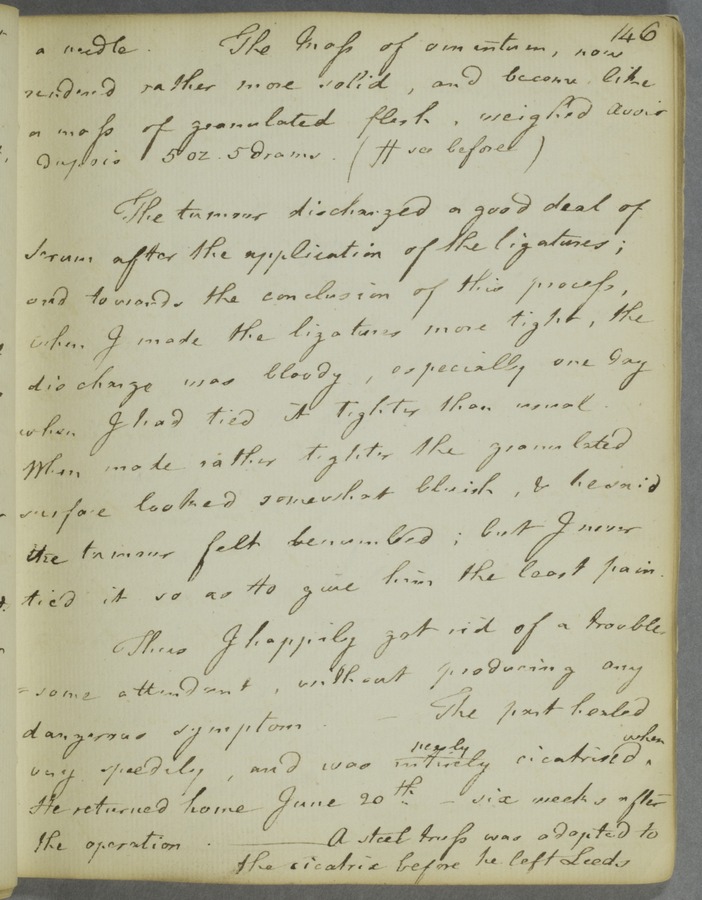 146
a needle. The Mass of omentum, now
rendered rather more solid, and become like
a mass of granulated flesh, weighed avoir
dupois 5 oz. 5 drams. (# see before)
The tumour discharged a good deal of
serum after the application of the ligatures;
and towards the conclusion of this process,
when I made the ligatures more tight, the
discharge was bloody, especially one day
when I had tied it tighter than usual.
When made rather tighter the granulated
surface looked somewhat bluish, & he said
the tumour felt benumbed; but I never
tied it so as to give him the least pain.
Thus I happily got rid of a trouble
=some attendant, without producing any
dangerous symptom. — The part healed
very speedily, and was entirely cicatrised, when
nearly
He returned home June 20th – six weeks after
the operation. — A steel truss was adapted to
the cicatrix before he left Leeds